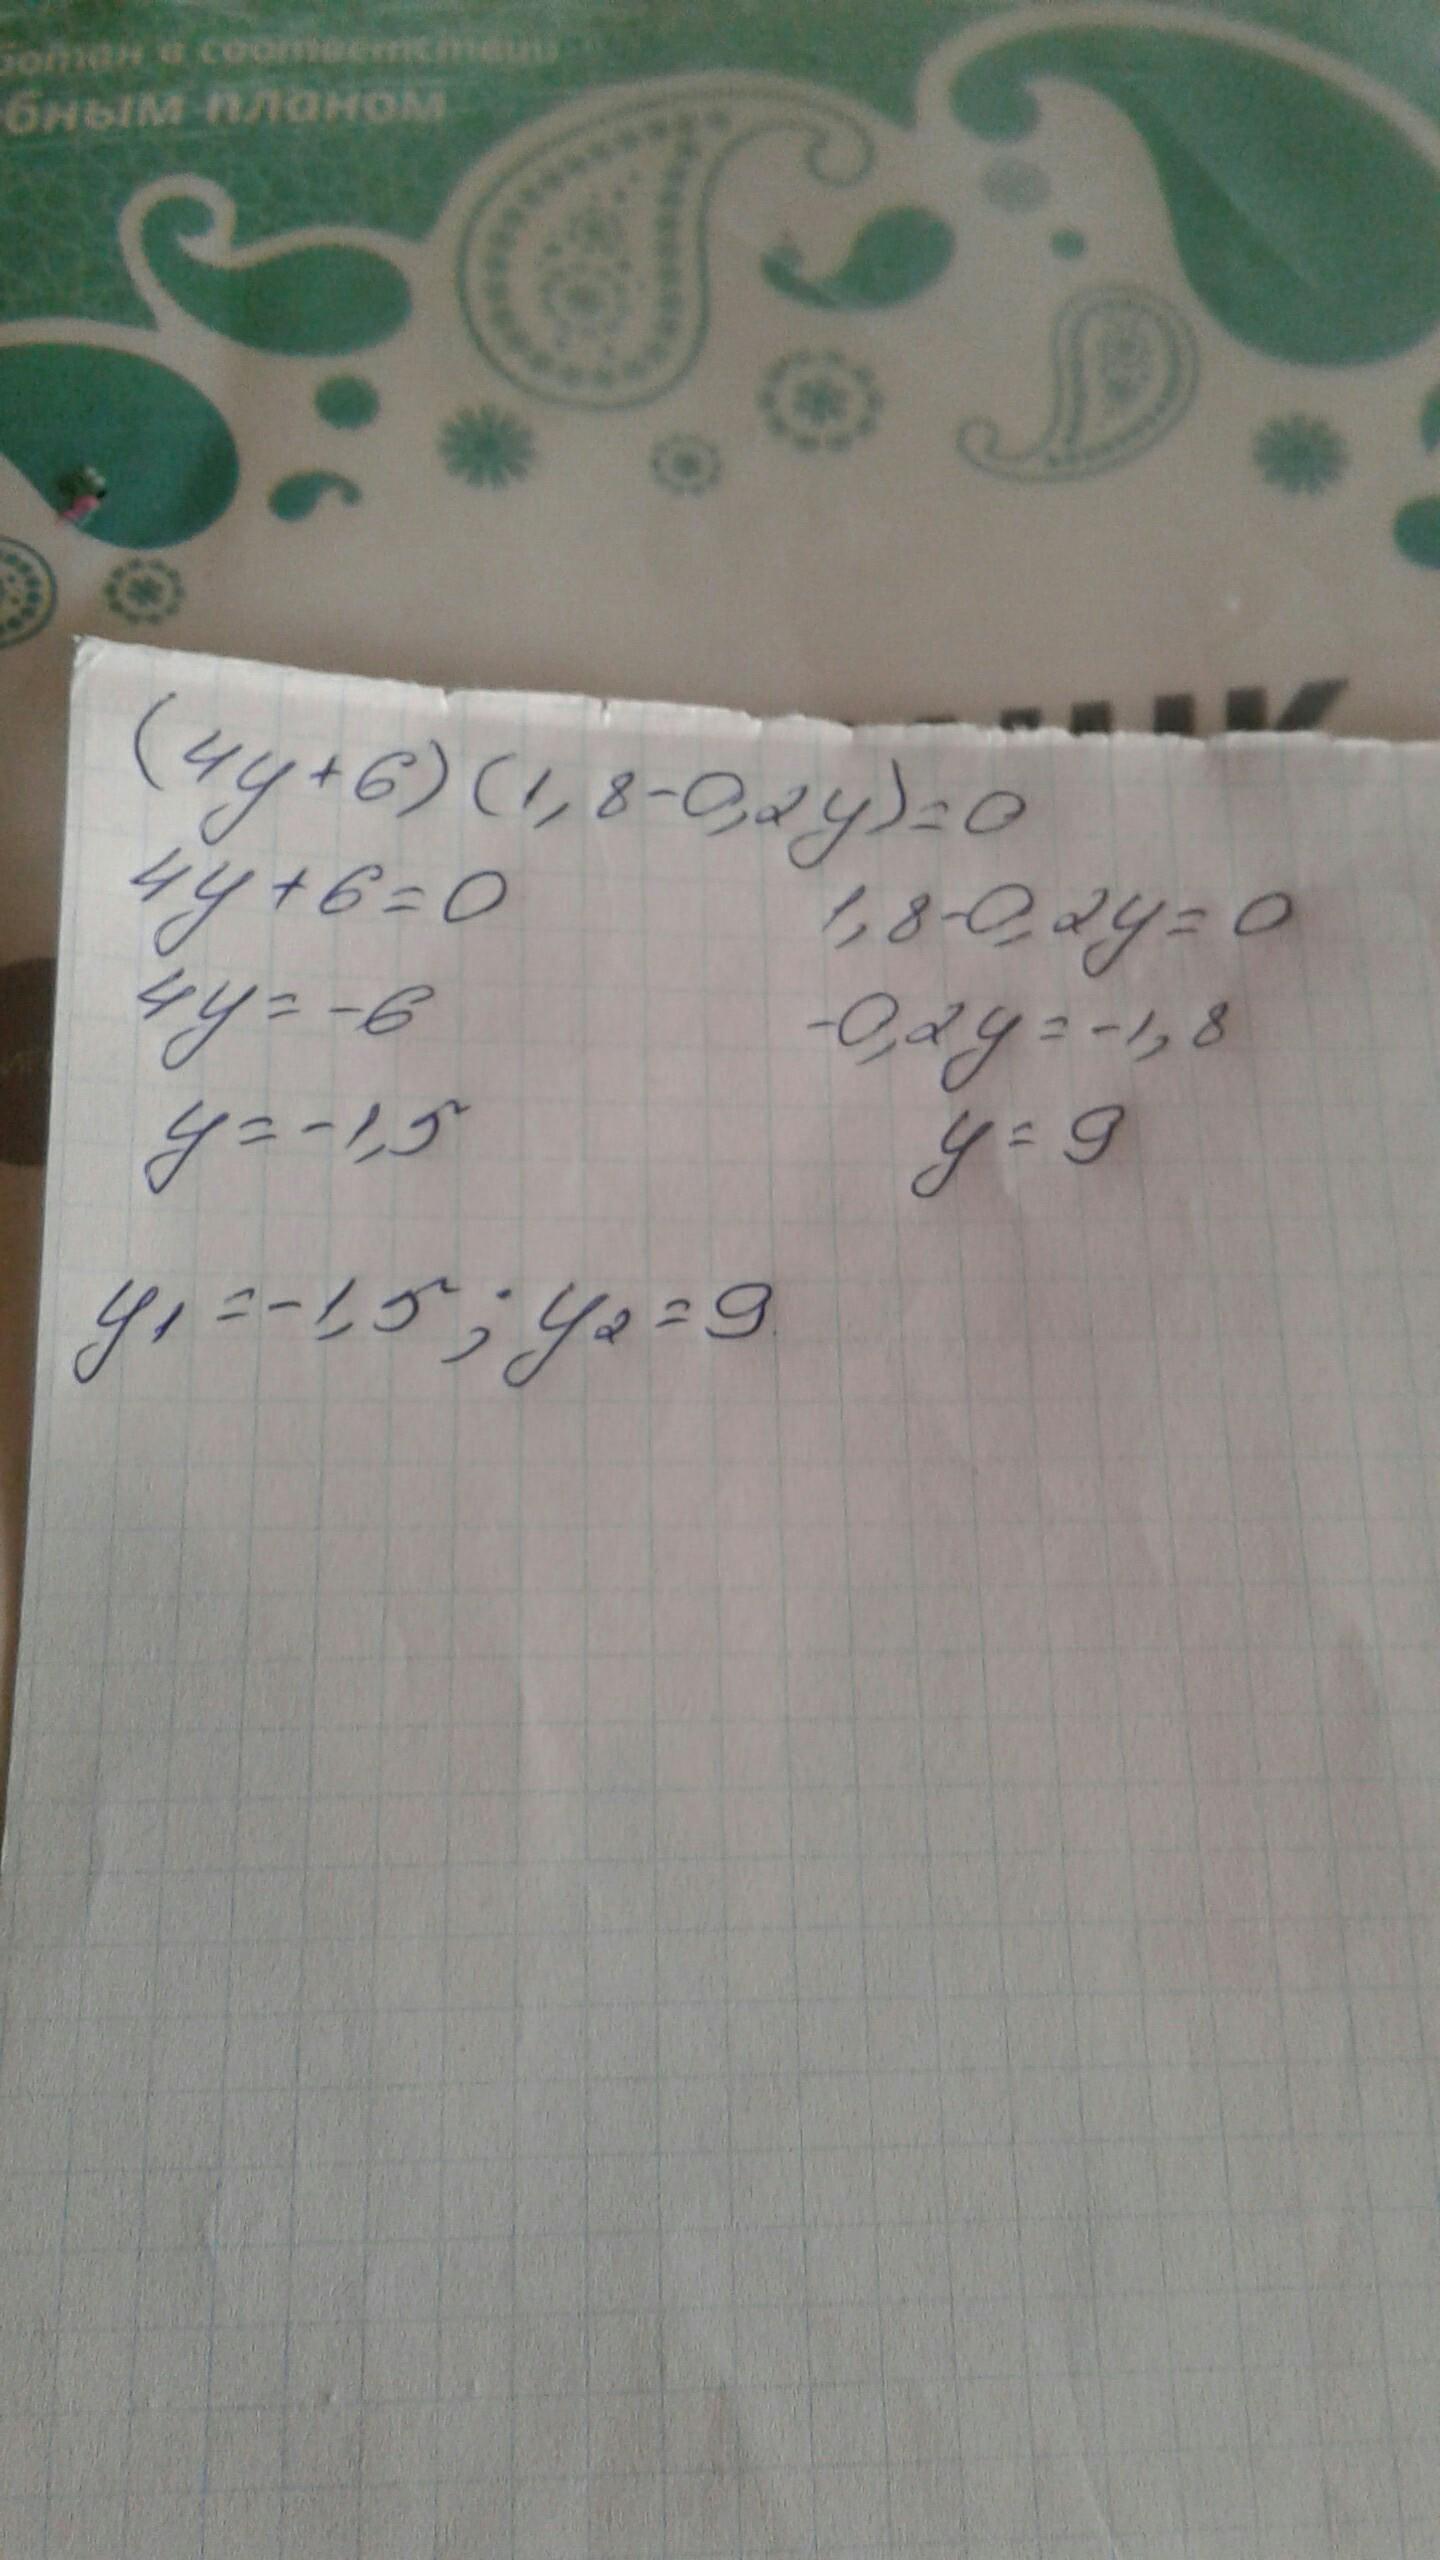 ботан в соответствии
бным планом
(4y+6)(1,8-0,2y)=0
4y+6=0 1,8-0,2y=0
4y=-6 -0,2y=-1,8
y=-1,5 y=9
y₁=-1,5; y₂=9